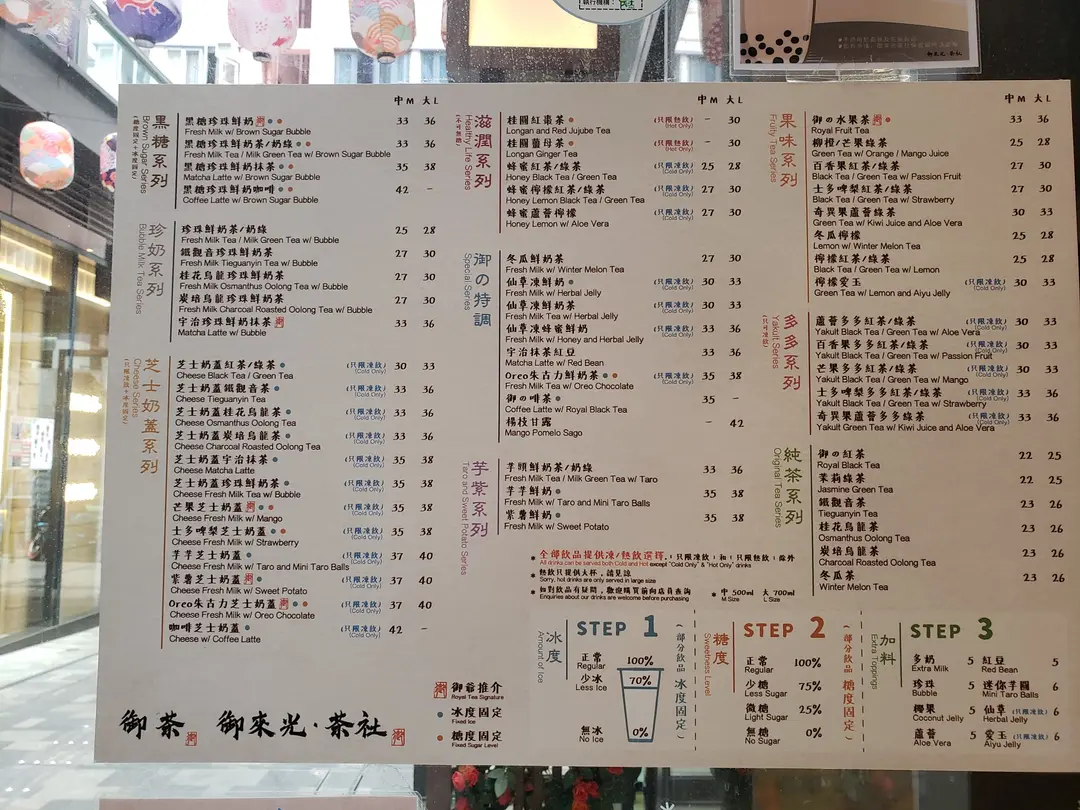 執行機構：
中M 大L
黑糖系列
Brown Sugar Series
(糖度固定+冰度固定)
黑糖珍珠鮮奶 33 36
Fresh Milk w/ Brown Sugar Bubble
黑糖珍珠鮮奶茶/奶綠
Fresh Milk Tea / Milk Green Tea w/ Brown Sugar Bubble
黑糖珍珠鮮奶抹茶 35 38
Matcha Latte w/ Brown Sugar Bubble
黑糖珍珠鮮奶咖啡 42 -
Coffee Latte w/ Brown Sugar Bubble
珍奶系列
Bubble Milk Tea Series
珍珠鮮奶茶/奶綠 25 28
Fresh Milk Tea / Milk Green Tea w/ Bubble
鐵觀音珍珠鮮奶茶 27 30
Fresh Milk Tieguanyin Tea w/ Bubble
桂花烏龍珍珠鮮奶茶 27 30
Fresh Milk Osmanthus Oolong Tea w/ Bubble
炭培烏龍珍珠鮮奶茶 27 30
Fresh Milk Charcoal Roasted Oolong Tea w/ Bubble
宇治珍珠鮮奶抹茶 33 36
Matcha Latte w/ Bubble
芝士奶蓋系列
Cheese Series
(只限凍飲+冰度固定)
芝士奶蓋紅茶/綠茶 (只限凍飲) 30 33
Cheese Black Tea / Green Tea (Cold Only)
芝士奶蓋鐵觀音茶 (只限凍飲) 33 36
Cheese Tieguanyin Tea (Cold Only)
芝士奶蓋桂花烏龍茶 (只限凍飲) 33 36
Cheese Osmanthus Oolong Tea (Cold Only)
芝士奶蓋炭培烏龍茶 (只限凍飲) 33 36
Cheese Charcoal Roasted Oolong Tea (Cold Only)
芝士奶蓋宇治抹茶 (只限凍飲) 35 38
Cheese Matcha Latte (Cold Only)
芝士奶蓋珍珠鮮奶茶 (只限凍飲) 35 38
Cheese Fresh Milk Tea w/ Bubble (Cold Only)
芒果芝士奶蓋 (只限凍飲) 35 38
Cheese Fresh Milk w/ Mango (Cold Only)
士多啤梨芝士奶蓋 (只限凍飲) 35 38
Cheese Fresh Milk w/ Strawberry (Cold Only)
芋芋芝士奶蓋 (只限凍飲) 37 40
Cheese Fresh Milk w/ Taro and Mini Taro Balls (Cold Only)
紫薯芝士奶蓋 (只限凍飲) 37 40
Cheese Fresh Milk w/ Sweet Potato (Cold Only)
Oreo朱古力芝士奶蓋 (只限凍飲) 37 40
Cheese Fresh Milk w/ Oreo Chocolate (Cold Only)
咖啡芝士奶蓋 (只限凍飲) 42 -
Cheese w/ Coffee Latte (Cold Only)
御爺推介
Royal Tea Signature
冰度固定
Fixed Ice
糖度固定
Fixed Sugar Level
御茶 御來光·茶社
中M 大L
滋潤系列
Healthy Life Series
桂圓紅棗茶 (只限熱飲) - 30
Longan and Red Jujube Tea (Hot Only)
桂圓薑母茶 (只限熱飲) - 30
Longan Ginger Tea (Hot Only)
蜂蜜紅茶/綠茶 (只限凍飲) 25 28
Honey Black Tea / Green Tea (Cold Only)
蜂蜜檸檬紅茶/綠茶 (只限凍飲) 27 30
Honey Lemon Black Tea / Green Tea (Cold Only)
蜂蜜蘆薈檸檬 (只限凍飲) 27 30
Honey Lemon w/ Aloe Vera (Cold Only)
御の特調
Special Series
冬瓜鮮奶茶 27 30
Fresh Milk w/ Winter Melon Tea
仙草凍鮮奶 (只限凍飲) 30 33
Fresh Milk w/ Herbal Jelly (Cold Only)
仙草凍鮮奶茶 (只限凍飲) 30 33
Fresh Milk Tea w/ Herbal Jelly (Cold Only)
仙草凍蜂蜜鮮奶 (只限凍飲) 33 36
Fresh Milk w/ Honey and Herbal Jelly (Cold Only)
宇治抹茶紅豆 33 36
Matcha Latte w/ Red Bean
Oreo朱古力鮮奶茶 (只限凍飲) 35 38
Fresh Milk Tea w/ Oreo Chocolate (Cold Only)
御の啡茶 35 -
Coffee Latte w/ Royal Black Tea
楊枝甘露 - 42
Mango Pomelo Sago
芋紫系列
Taro and Sweet Potato Series
芋頭鮮奶茶/奶綠 33 36
Fresh Milk Tea / Milk Green Tea w/ Taro
芋芋鮮奶 35 38
Fresh Milk w/ Taro and Mini Taro Balls
紫薯鮮奶 35 38
Fresh Milk w/ Sweet Potato
全部飲品提供凍/熱飲選擇，(只限凍飲)和(只限熱飲)除外
All drinks can be served both Cold and Hot except "Cold Only" & "Hot Only" drinks
熱飲只提供大杯，請見諒
Sorry, hot drinks are only served in large size
如對飲品有疑問，歡迎購買前向店員查詢
Enquiries about our drinks are welcome before purchasing
中 500ml 大 700ml
M Size L Size
中M 大L
果味系列
Fruity Tea Series
御の水果茶 33 36
Royal Fruit Tea
柳橙/芒果綠茶 25 28
Green Tea w/ Orange / Mango Juice
百香果紅茶/綠茶 27 30
Black Tea / Green Tea w/ Passion Fruit
士多啤梨紅茶/綠茶 27 30
Black Tea / Green Tea w/ Strawberry
奇異果蘆薈綠茶 30 33
Green Tea w/ Kiwi Juice and Aloe Vera
冬瓜檸檬 25 28
Lemon w/ Winter Melon Tea
檸檬紅茶/綠茶 25 28
Black Tea / Green Tea w/ Lemon
檸檬愛玉 (只限凍飲) 30 33
Green Tea w/ Lemon and Aiyu Jelly (Cold Only)
多多系列
Yakult Series
(只可凍飲)
蘆薈多多紅茶/綠茶 (只限凍飲) 30 33
Yakult Black Tea / Green Tea w/ Aloe Vera (Cold Only)
百香果多多紅茶/綠茶 (只限凍飲) 30 33
Yakult Black Tea / Green Tea w/ Passion Fruit (Cold Only)
芒果多多紅茶/綠茶 (只限凍飲) 30 33
Yakult Black Tea / Green Tea w/ Mango (Cold Only)
士多啤梨多多紅茶/綠茶 (只限凍飲) 30 33
Yakult Black Tea / Green Tea w/ Strawberry (Cold Only)
奇異果蘆薈多多綠茶 (只限凍飲) 33 36
Yakult Green Tea w/ Kiwi Juice and Aloe Vera (Cold Only)
純茶系列
Original Tea Series
御の紅茶 22 25
Royal Black Tea
茉莉綠茶 22 25
Jasmine Green Tea
鐵觀音茶 23 26
Tieguanyin Tea
桂花烏龍茶 23 26
Osmanthus Oolong Tea
炭培烏龍茶 23 26
Charcoal Roasted Oolong Tea
冬瓜茶 23 26
Winter Melon Tea
冰度
Amount of Ice
STEP 1
正常 100%
Regular
少冰 70%
Less Ice
無冰 0%
No Ice
(部分飲品冰度固定)
糖度
Sweetness Level
STEP 2
正常 100%
Regular
少糖 75%
Less Sugar
微糖 25%
Light Sugar
無糖 0%
No Sugar
(部分飲品糖度固定)
加料
Extra Toppings
STEP 3
多奶 5 紅豆 5
Extra Milk Red Bean
珍珠 5 迷你芋圓 6
Bubble Mini Taro Balls
椰果 5 仙草 (只限凍飲) 6
Coconut Jelly Herbal Jelly
蘆薈 5 愛玉 (只限凍飲) 6
Aloe Vera Aiyu Jelly